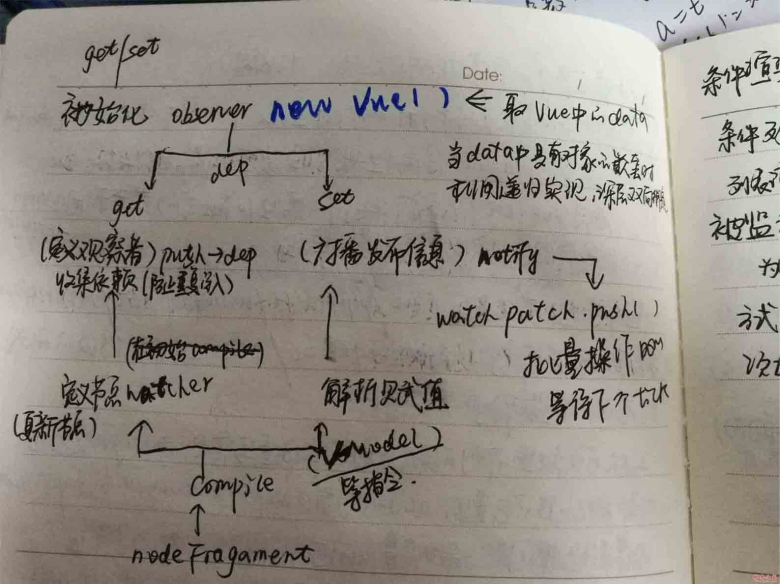 get/set
Date:
初始化 observer new Vue() ← 取Vue中的data
当data中具有对象的嵌套时
利用递归实现,深层双向绑定
dep
get set
(定义观察者) push→dep (广播发布信息) notify
收集依赖(防止重复导入)
watch patch.push()
(在初始compile) 批量操作DOM
定义节点watcher 解析员赋值 等待下个tick
(更新节点)
(v-model)
compile 等指令.
nodeFragament
a=t
条件
条件
列表
初
为
方式
次